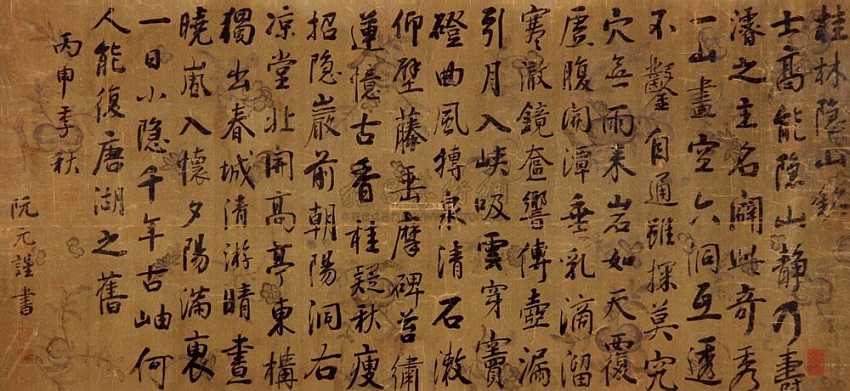 桂林隐山銘
士高能隐山静乃壽
濬之主名闢此奇秀
一山盡空六洞互透
不鑿自通雖探莫究
穴無雨来岩如天覆
虚腹開潭垂乳滴溜
寒澈鏡奩響傳壺漏
引月入峡吸雲穿竇
磴曲風摶泉清石漱
仰壁藤垂摩碑苔繡
蓮憶古香桂疑秋瘦
招隐巖前朝陽洞右
凉堂北開高亭東構
獨出春城清游晴晝
曉嵐入懷夕陽滿褎
一日小隐千年古岫何
人能復唐湖之舊
丙申季秋
阮元謹書